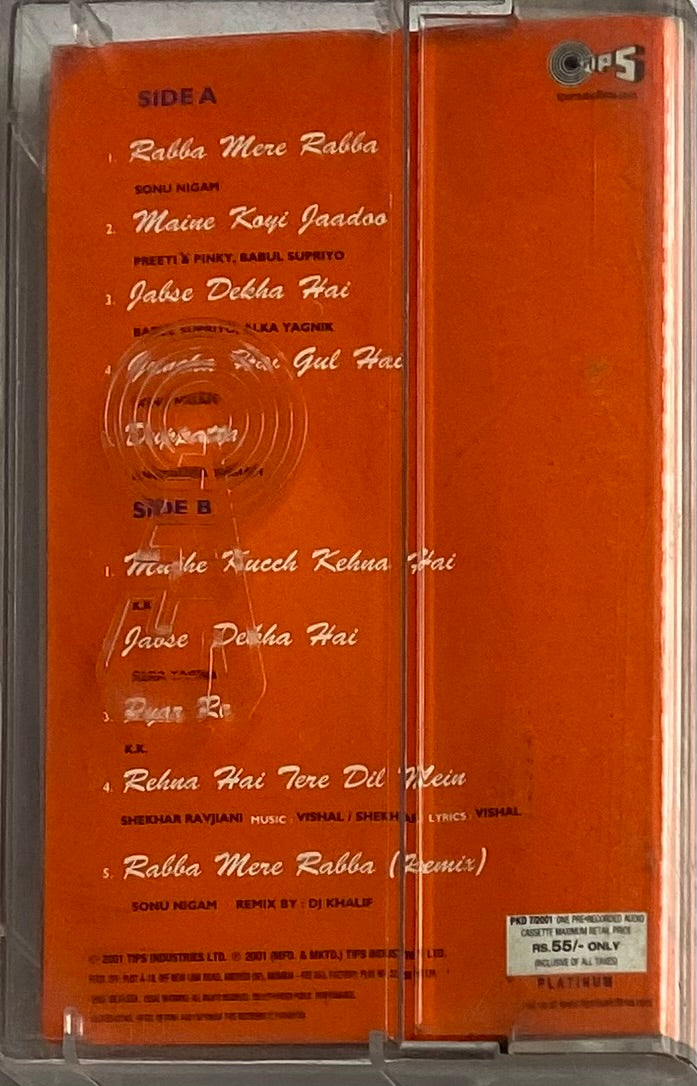 TIPS
SIDE A
1. Rabba Mere Rabba
SONU NIGAM
2. Maine Koyi Jaadoo
PREETI & PINKY, BABUL SUPRIYO
3. Jabse Dekha Hai
BABUL SUPRIYO, ALKA YAGNIK
4. Hai Gul Hai
SONU NIGAM
Dupatta
SIDE B
1. Mujhe Kucch Kehna Hai
K.K.
Jabse Dekha Hai
ALKA YAGNIK
3. Pyar Re
K.K.
4. Rehna Hai Tere Dil Mein
SHEKHAR RAVJIANI MUSIC : VISHAL / SHEKHAR LYRICS : VISHAL
5. Rabba Mere Rabba (Remix)
SONU NIGAM REMIX BY : DJ KHALIF
PKD 7/2001 ONE PRE-RECORDED AUDIO
CASSETTE MAXIMUM RETAIL PRICE
RS. 55/- ONLY
(INCLUSIVE OF ALL TAXES)
PLATINUM
© 2001 TIPS INDUSTRIES LTD. ℗ 2001 (MFD. & MKTD.) TIPS INDUSTRIES LTD.